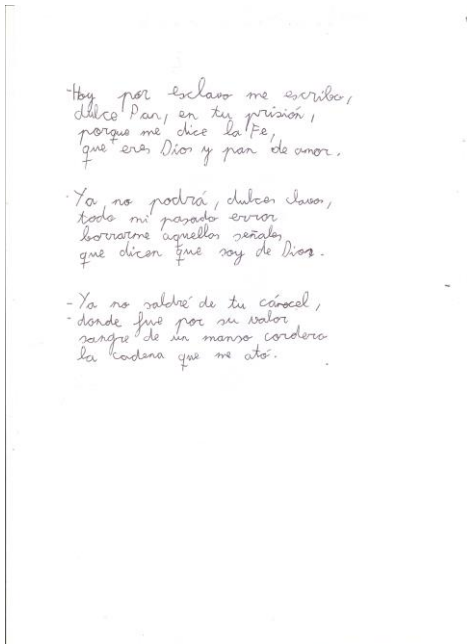 -Hoy por esclavo me escribo,
dulce Pan, en tu prisión,
porque me dice la Fe,
que eres Dios y pan de amor.
-Ya no podrá, dulces clavos,
todo mi pasado error
borrarme aquellas señales
que dicen que soy de Dios.
-Ya no saldré de tu cárcel,
-donde fue por su valor
sangre de un manso cordero
la cadena que me ató.